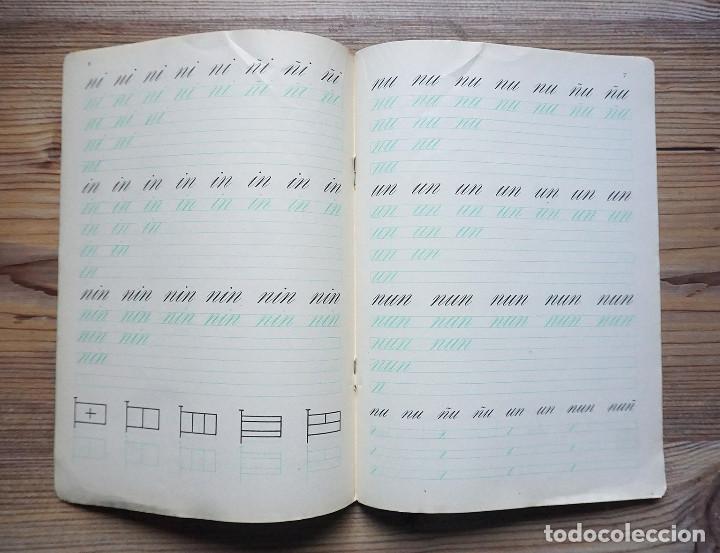 6
ni ni ni ni ni ñi ñi ñi
ni ni ni ni ni ñi ñi ñi
ni ni ni
ni ni
ni
in in in in in in in in
in in in in in in in in
in in in
in in
in
nin nin nin nin nin nin
nin nin nin nin nin nin
nin nin
nin
7
nu nu nu nu nu nu ñu ñu
nu nu nu nu nu nu ñu ñu
nu nu nu
nu nu
nu
un un un un un un un
un un un un un un un
un un un
un un
un
nun nun nun nun nun
nun nun nun nun nun
nun nun
nun
n
nu nu ñu ñu un un nun nuñ
todocoleccion